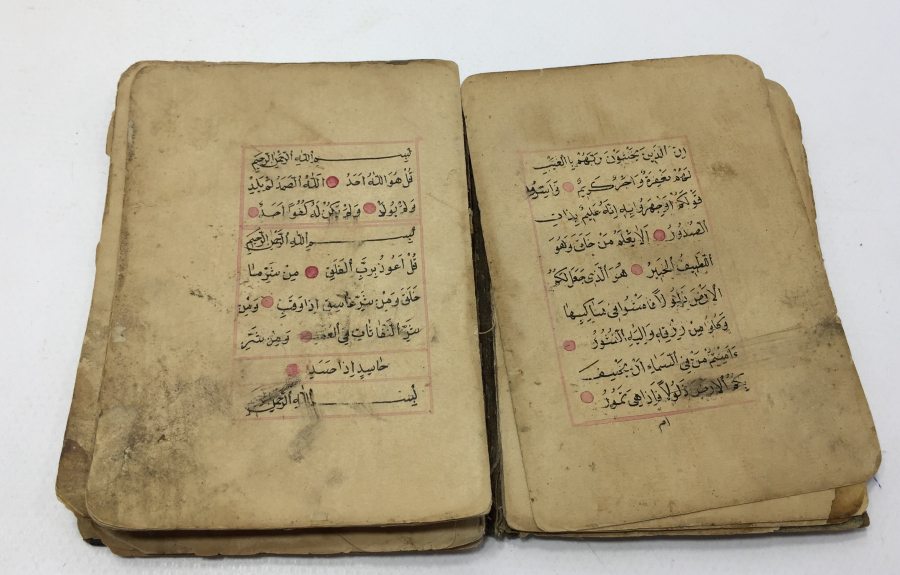 اِنَّ الَّذِينَ يَخْشَوْنَ رَبَّهُمْ بِالْغَيْبِ
لَهُمْ مَغْفِرَةٌ وَاَجْرٌ كَرِيمٌ وَاَسِرُّوا
قَوْلَكُمْ اَوِ اجْهَرُوا بِهِ اِنَّهُ عَلِيمٌ بِذَاتِ
الصُّدُورِ اَلَا يَعْلَمُ مَنْ خَلَقَ وَهُوَ
اللَّطِيفُ الْخَبِيرُ هُوَ الَّذِي جَعَلَ لَكُمُ
الْاَرْضَ ذَلُولًا فَامْشُوا فِي مَنَاكِبِهَا
وَكُلُوا مِنْ رِزْقِهِ وَاِلَيْهِ النُّشُورُ
ءَاَمِنْتُمْ مَنْ فِي السَّمَاءِ اَنْ يَخْسِفَ
بِكُمُ الْاَرْضَ ذَلُولًا فَاِذَا هِيَ تَمُورُ
ام
بِسْمِ اللّٰهِ الرَّحْمٰنِ الرَّحِيمِ
قُلْ هُوَ اللّٰهُ اَحَدٌ اَللّٰهُ الصَّمَدُ لَمْ يَلِدْ
وَلَمْ يُولَدْ وَلَمْ يَكُنْ لَهُ كُفُوًا اَحَدٌ
بِسْمِ اللّٰهِ الرَّحْمٰنِ الرَّحِيمِ
قُلْ اَعُوذُ بِرَبِّ الْفَلَقِ مِنْ شَرِّ مَا
خَلَقَ وَمِنْ شَرِّ غَاسِقٍ اِذَا وَقَبَ وَمِنْ
شَرِّ النَّفَّاثَاتِ فِي الْعُقَدِ وَمِنْ شَرِّ
حَاسِدٍ اِذَا حَسَدَ
بِسْمِ اللّٰهِ الرَّحْمٰنِ الرَّحِيمِ